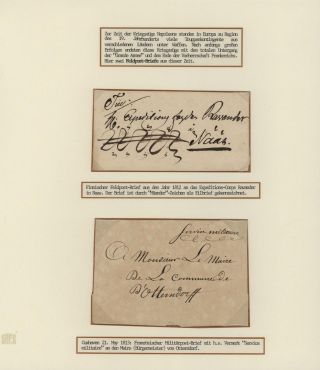 Zur Zeit der Kriegszüge Napoleons standen in Europa zu Beginn
des 19. Jahrhunderts viele Truppenkontingente aus
verschiedenen Ländern unter Waffen. Nach anfangs großen
Erfolgen endeten diese Kriegszüge mit dem totalen Untergang
der "Grande Armee" und das Ende der Vorherrschaft Frankreichs.
Hier zwei Feldpost-Briefe aus dieser Zeit.
Till
Expeditions
Naas.
Finnischer Feldpost-Brief aus dem Jahr 1812 an das Expeditions-Corps
in Naas. Der Brief ist durch -Zeichen als Eilbrief gekennzeichnet.
Service militaire
A Monsieur Le Maire
De La Commune de
D'Otterndorff
Cuxhaven 21. May 1813: Französischer Militärpost-Brief mit h.s. Vermerk "Service
militaire" an den Maire (Bürgermeister) von Otterndorf.